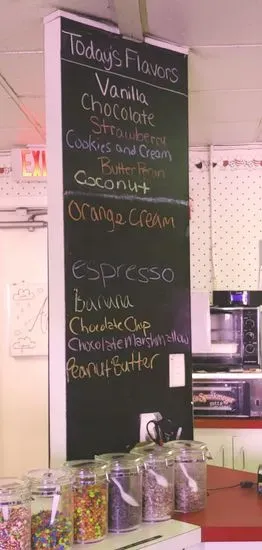 Today's Flavors
Vanilla
Chocolate
Strawberry
Cookies and Cream
Butter Pecan
Coconut
Orange Cream
espresso
Banana
Chocolate Chip
Chocolate Marshmallow
Peanut Butter
EXI